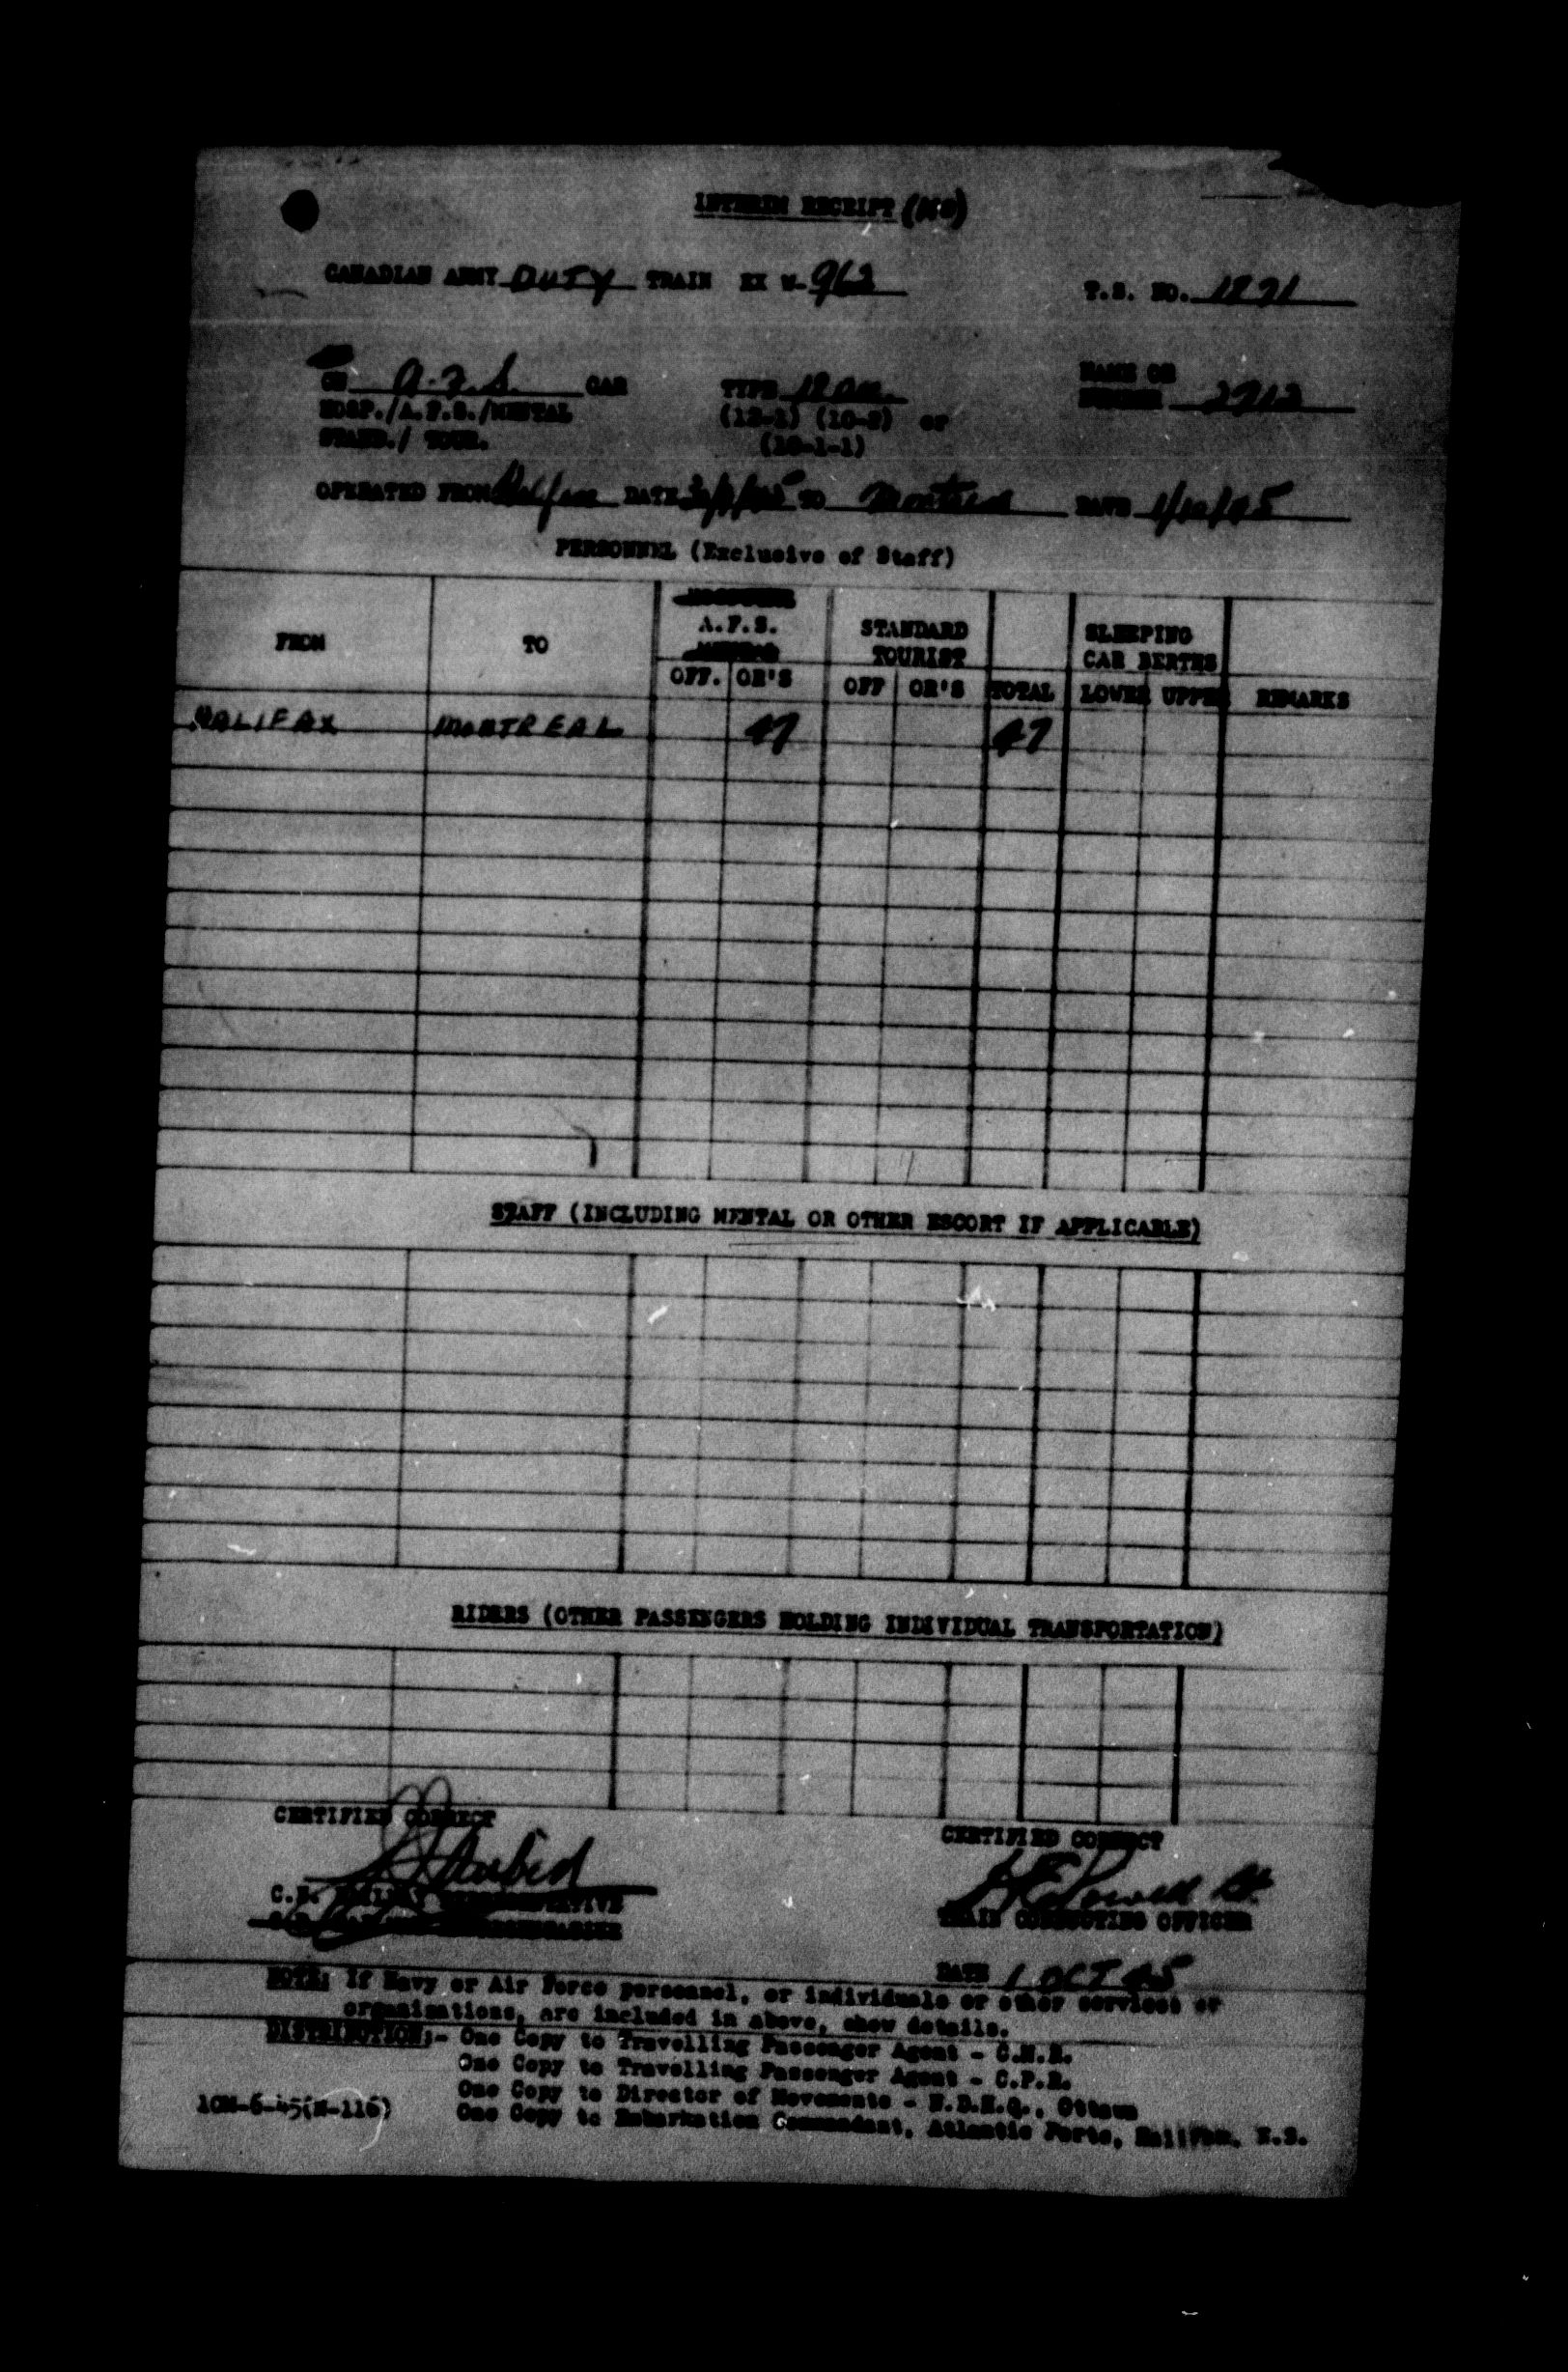 INTERIM RECEIPT
CANADIAN ARMY DUTY TRAIN EX W-962 T.S. NO. 1871
ON A.F.S. CAR TYPE NAME OR
NUMBER 2712
HOSP./A.F.S./MENTAL (12-1) (10-2) or
STAND./ TOUR. (10-1-1)
OPERATED FROM Halifax DATE TO Montreal DATE 1/10/45
PERSONNEL (Exclusive of Staff)
FROM TO A.F.S. STANDARD TOURIST SLEEPING CAR BERTHS
OFF. OR'S OFF OR'S TOTAL LOWER UPPER REMARKS
HALIFAX MONTREAL 47 47
STAFF (INCLUDING MENTAL OR OTHER ESCORT IF APPLICABLE)
RIDERS (OTHER PASSENGERS HOLDING INDIVIDUAL TRANSPORTATION)
CERTIFIED CORRECT CERTIFIED CORRECT
Powell Lt.
C.N. RAILWAY REPRESENTATIVE TRAIN CONDUCTING OFFICER
DATE 1 OCT 45
NOTE: If Navy or Air Force personnel, or individuals or other services or
organizations, are included in above, show details.
DISTRIBUTION:- One Copy to Travelling Passenger Agent - C.N.R.
One Copy to Travelling Passenger Agent - C.P.R.
One Copy to Director of Movements - N.D.H.Q., Ottawa
10M-6-45(N-116) One Copy to Embarkation Commandant, Atlantic Ports, Halifax, N.S.